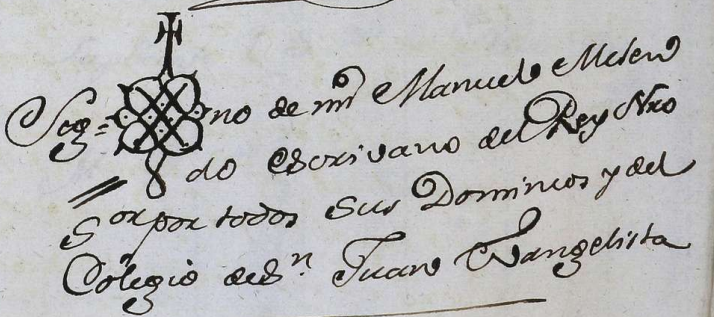 Seg= no de mi Manuel Melen
do escrivano del Rey Nro
S.or por todos sus Dominios y del
Colegio de S.n Juan Evangelista